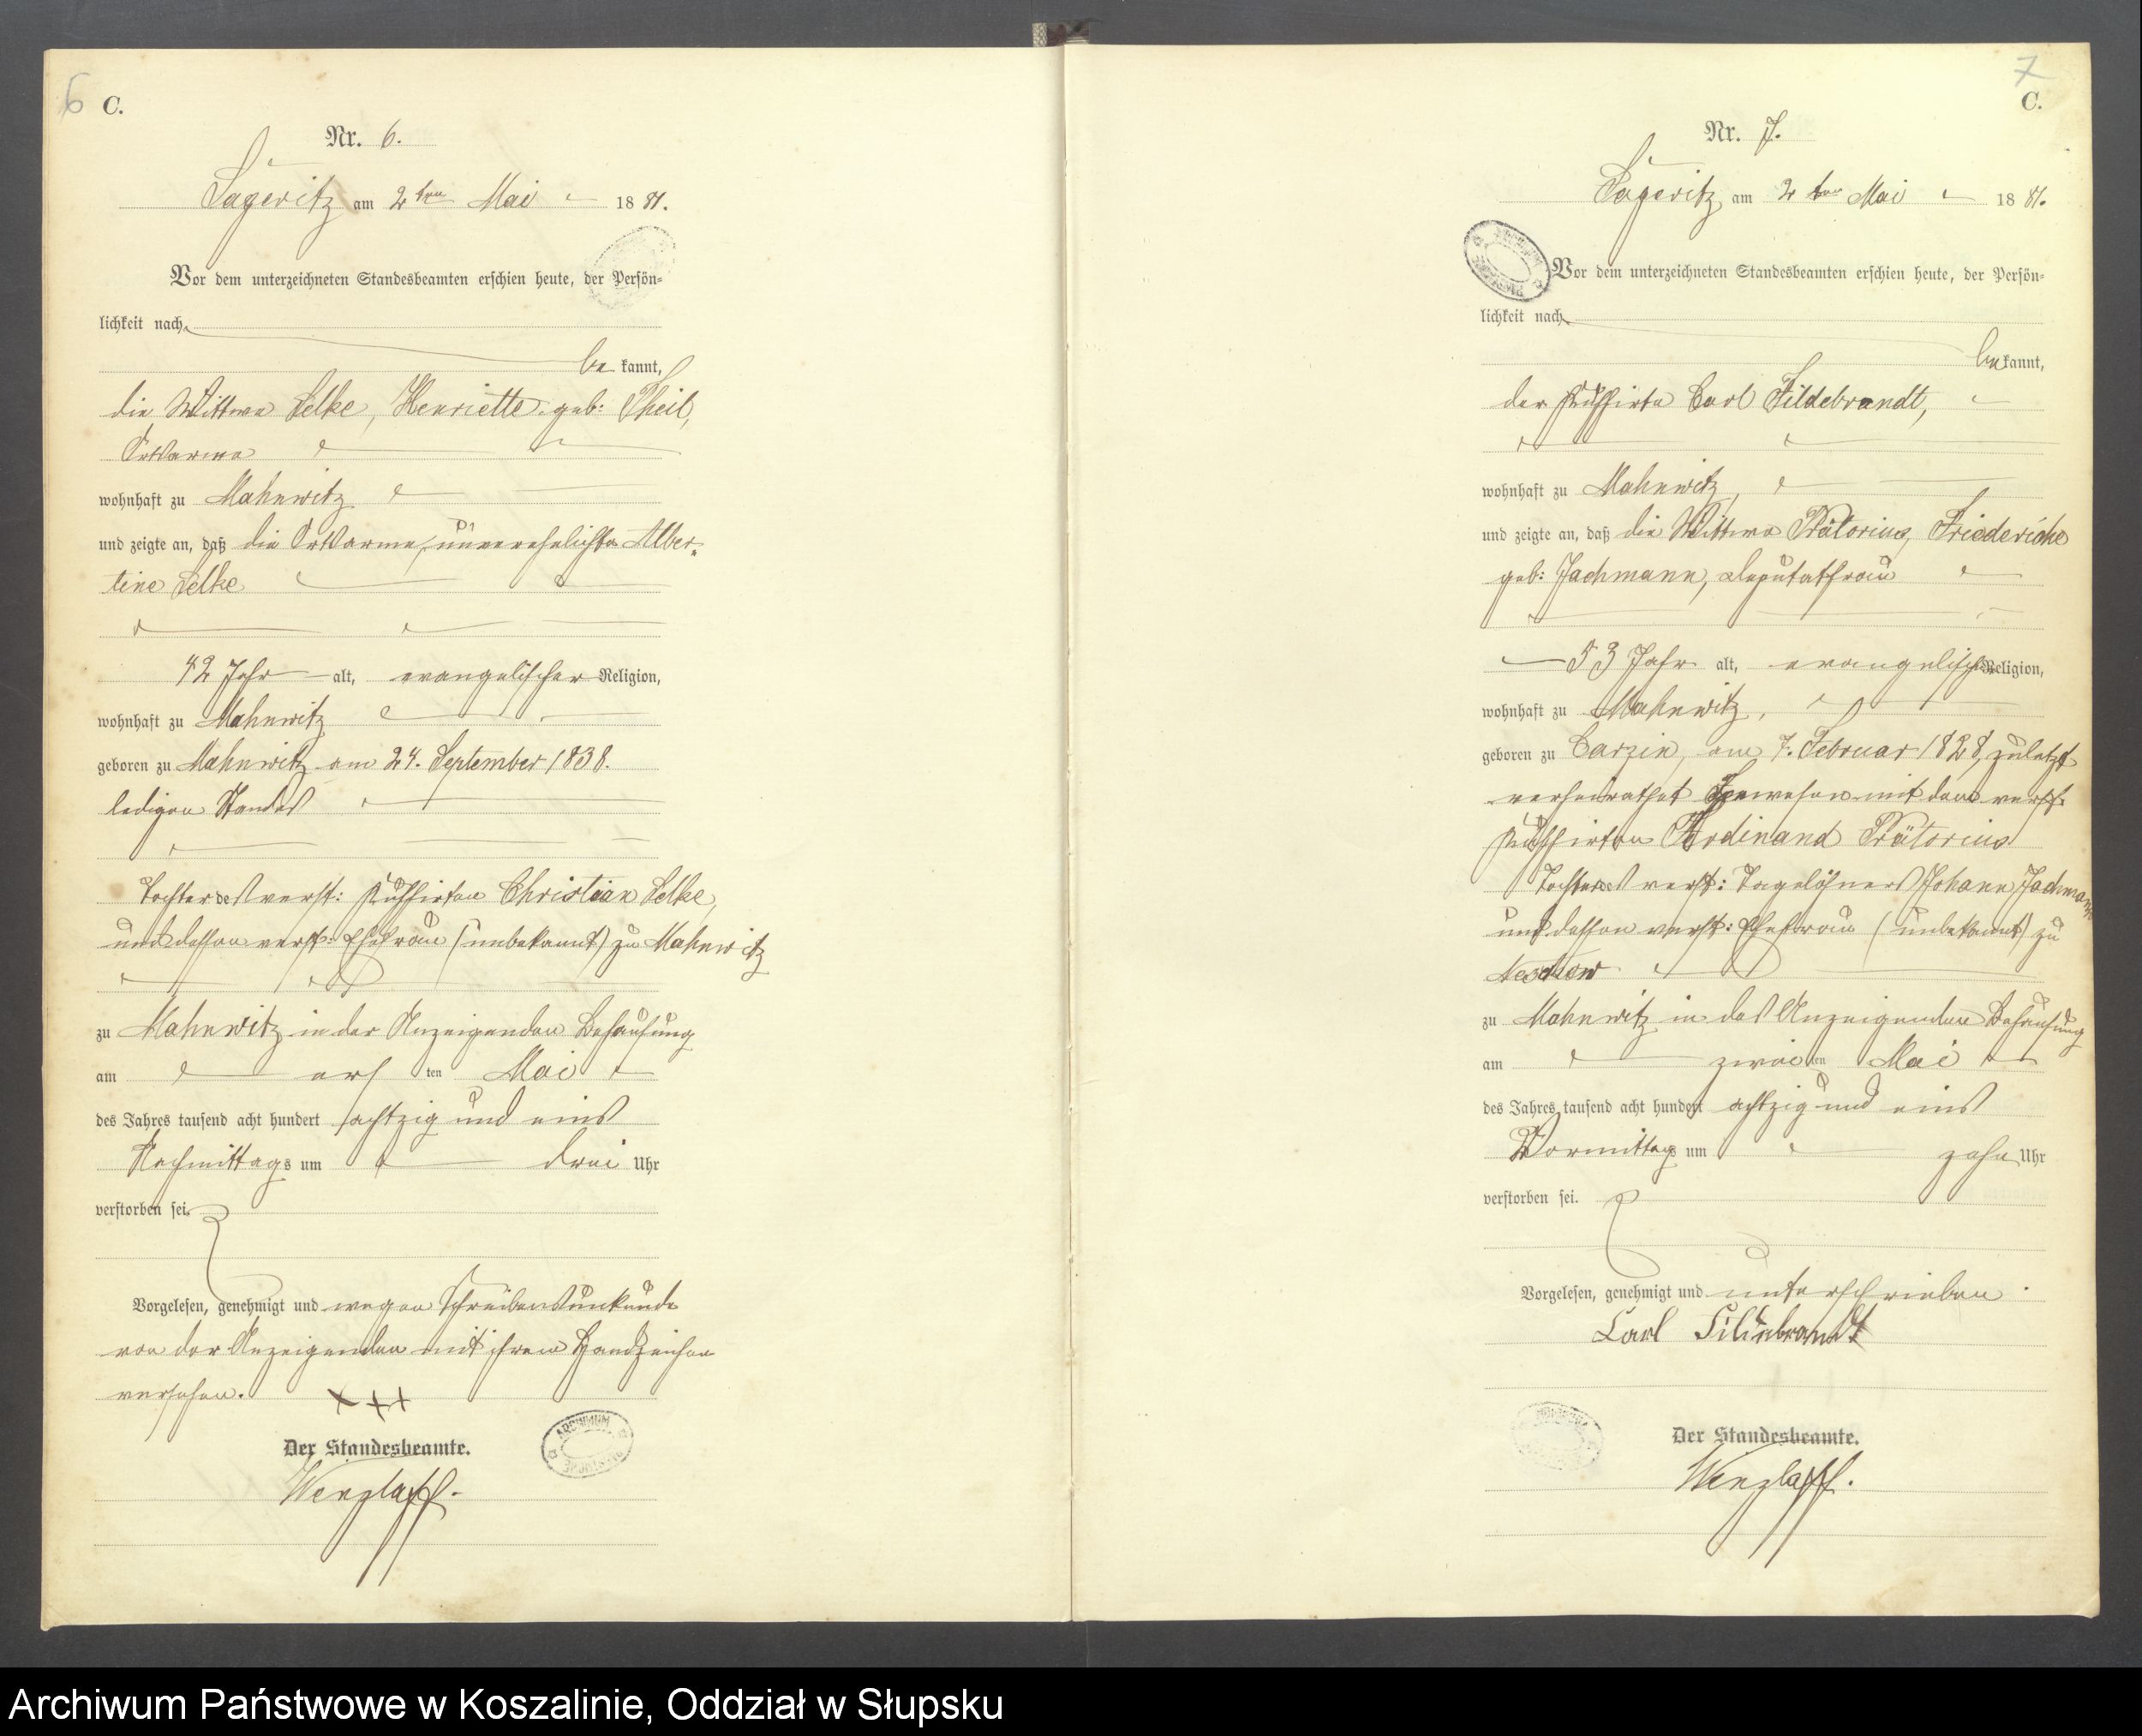 6 C.
Nr. 6.
Sageritz am 2ten Mai 1881.
Vor dem unterzeichneten Standesbeamten erschien heute, der Persön-
lichkeit nach
be kannt,
die Wittwe Selke, Henriette geb: Theil,
Ortsarme
wohnhaft zu Mahnwitz
und zeigte an, daß die Ortsarme, unverehelichte Alber-
tine Selke
42 Jahr alt, evangelischer Religion,
wohnhaft zu Mahnwitz
geboren zu Mahnwitz am 24. September 1838.
ledigen Standes
Tochter des verst: Kuhhirten Christian Selke,
und dessen verst: Ehefrau (unbekannt) zu Mahnwitz
zu Mahnwitz in der Anzeigenden Behausung
am ersten Mai
des Jahres tausend acht hundert achtzig und eins
Nachmittags um drei Uhr
verstorben sei.
Vorgelesen, genehmigt und wegen Schreibensunkunde
von der Anzeigenden mit ihrem Handzeichen
versehen. + + +
Der Standesbeamte.
Wenzlaff.
ARCHIWUM
7
C.
Nr. 7.
Sageritz am 2ten Mai 1881.
Vor dem unterzeichneten Standesbeamten erschien heute, der Persön-
lichkeit nach
bekannt,
der Kuhhirte Carl Hildebrandt,
wohnhaft zu Mahnwitz,
und zeigte an, daß die Wittwe Prätorius, Friedericke
geb: Jachmann, Deputatfrau
53 Jahr alt, evangelischer Religion,
wohnhaft zu Mahnwitz,
geboren zu Carzin, am 7. Februar 1828, zuletzt
verheirathet gewesen mit dem verst.
Kuhhirten Ferdinand Prätorius
Tochter des verst: Tagelöhners Johann Jachmann
und dessen verst: Ehefrau (unbekannt) zu
zu Mahnwitz in des Anzeigenden Behausung
am zweiten Mai
des Jahres tausend acht hundert achtzig und eins
Vormittags um zehn Uhr
verstorben sei.
Vorgelesen, genehmigt und unterschrieben.
Carl Hildebrandt
Der Standesbeamte.
Wenzlaff.
Archiwum Państwowe w Koszalinie, Oddział w Słupsku